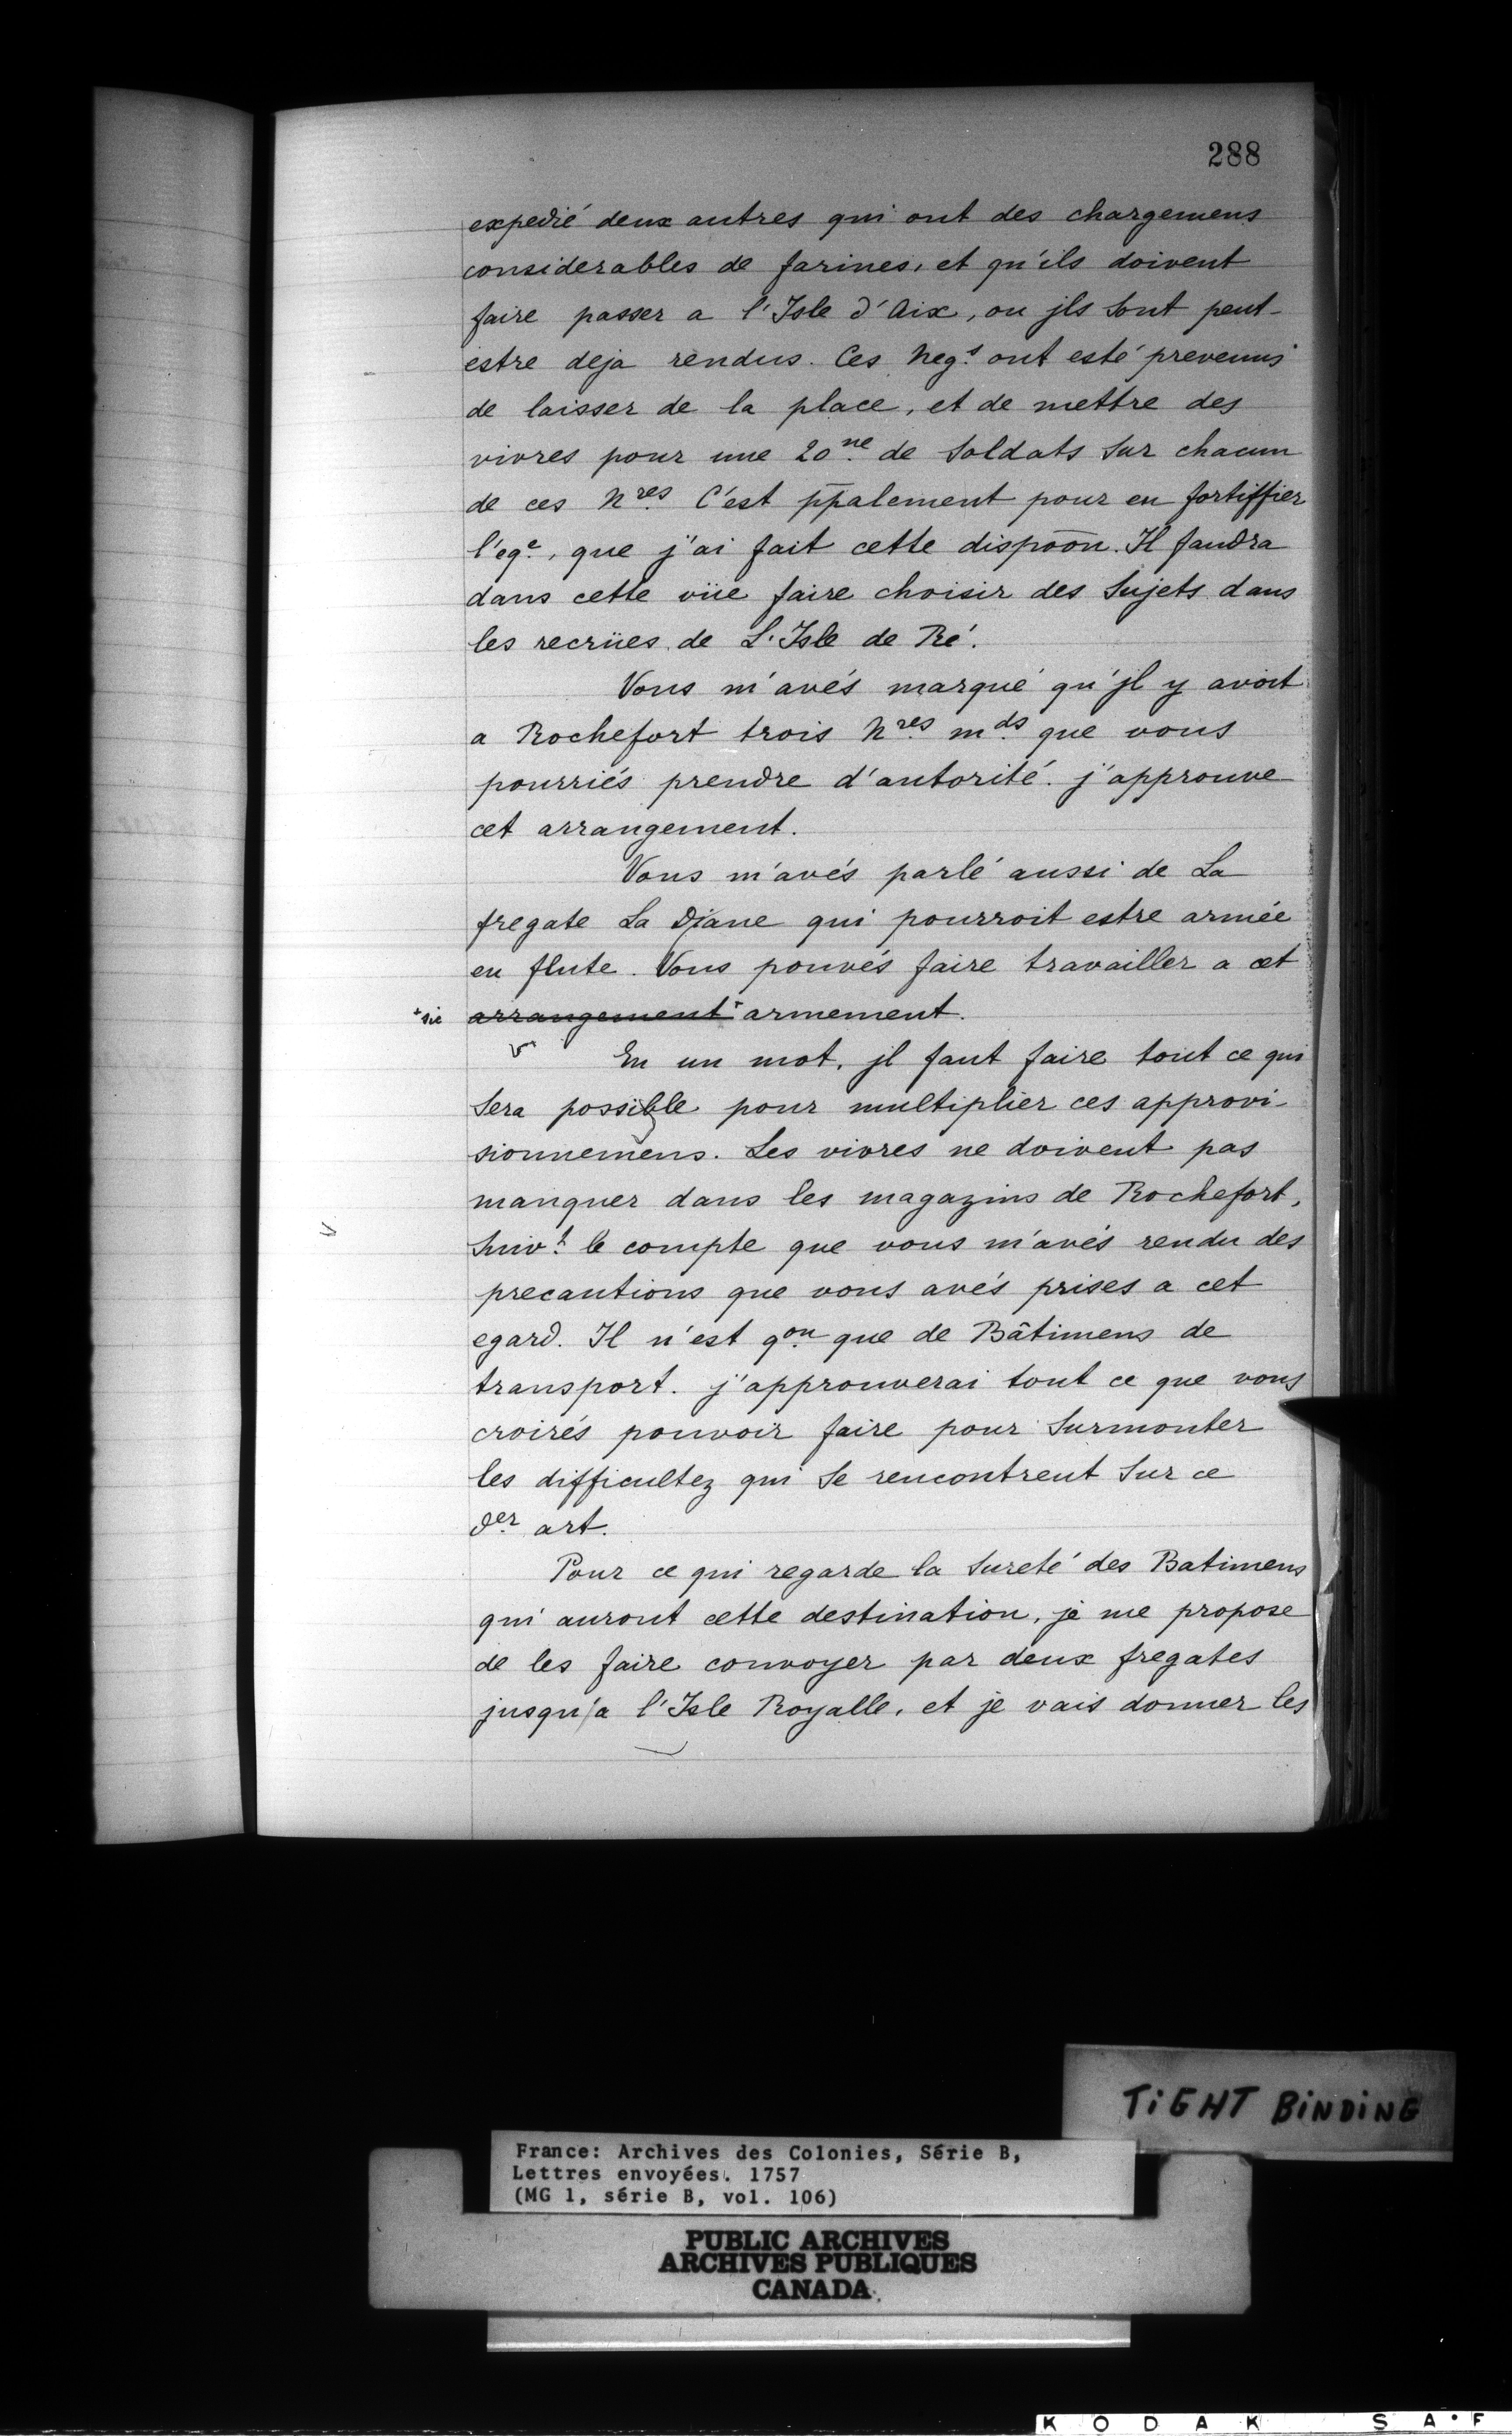 288
expedié deux autres qui ont des chargemens
considerables de farines, et qu'ils doivent
faire passer a l'Isle d'Aix, ou jls sont peut-
estre deja rendus. Ces Neg.s ont esté prevenus
de laisser de la place, et de mettre des
vivres pour une 20.ne de soldats sur chacun
de ces N.res C'est p̅p̅alement pour en fortiffier
l'eq.e, que j'ai fait cette dispo̅o̅n. Il faudra
dans cette vüe faire choisir des sujets dans
les recrües de L'Isle de Ré.
Vous m'avés marqué qu'jl y avoit
a Rochefort trois N.res m.ds que vous
pourriés prendre d'autorité. j'approuve
cet arrangement.
Vous m'avés parlé aussi de La
fregate La Djane qui pourroit estre armée
en flute. Vous pouvés faire travailler a cet
+sic arrangement+ armement.
En un mot, jl faut faire tout ce qui
sera possible pour multiplier ces approvi-
sionnemens. Les vivres ne doivent pas
manquer dans les magazins de Rochefort,
suiv.t le compte que vous m'avés rendu des
precautions que vous avés prises a cet
egard. Il n'est q.on que de Bâtimens de
transport. j'approuverai tout ce que vous
croirés pouvoir faire pour surmonter
les difficultez qui se rencontrent sur ce
d.er art.
Pour ce qui regarde la sureté des Batimens
qui auront cette destination, je me propose
de les faire convoyer par deux fregates
jusqu'a l'Isle Royalle, et je vais donner les
TiGHT BiNDiNG
France: Archives des Colonies, Série B,
Lettres envoyées. 1757
(MG 1, série B, vol. 106)
PUBLIC ARCHIVES
ARCHIVES PUBLIQUES
CANADA
KODAK SA·F